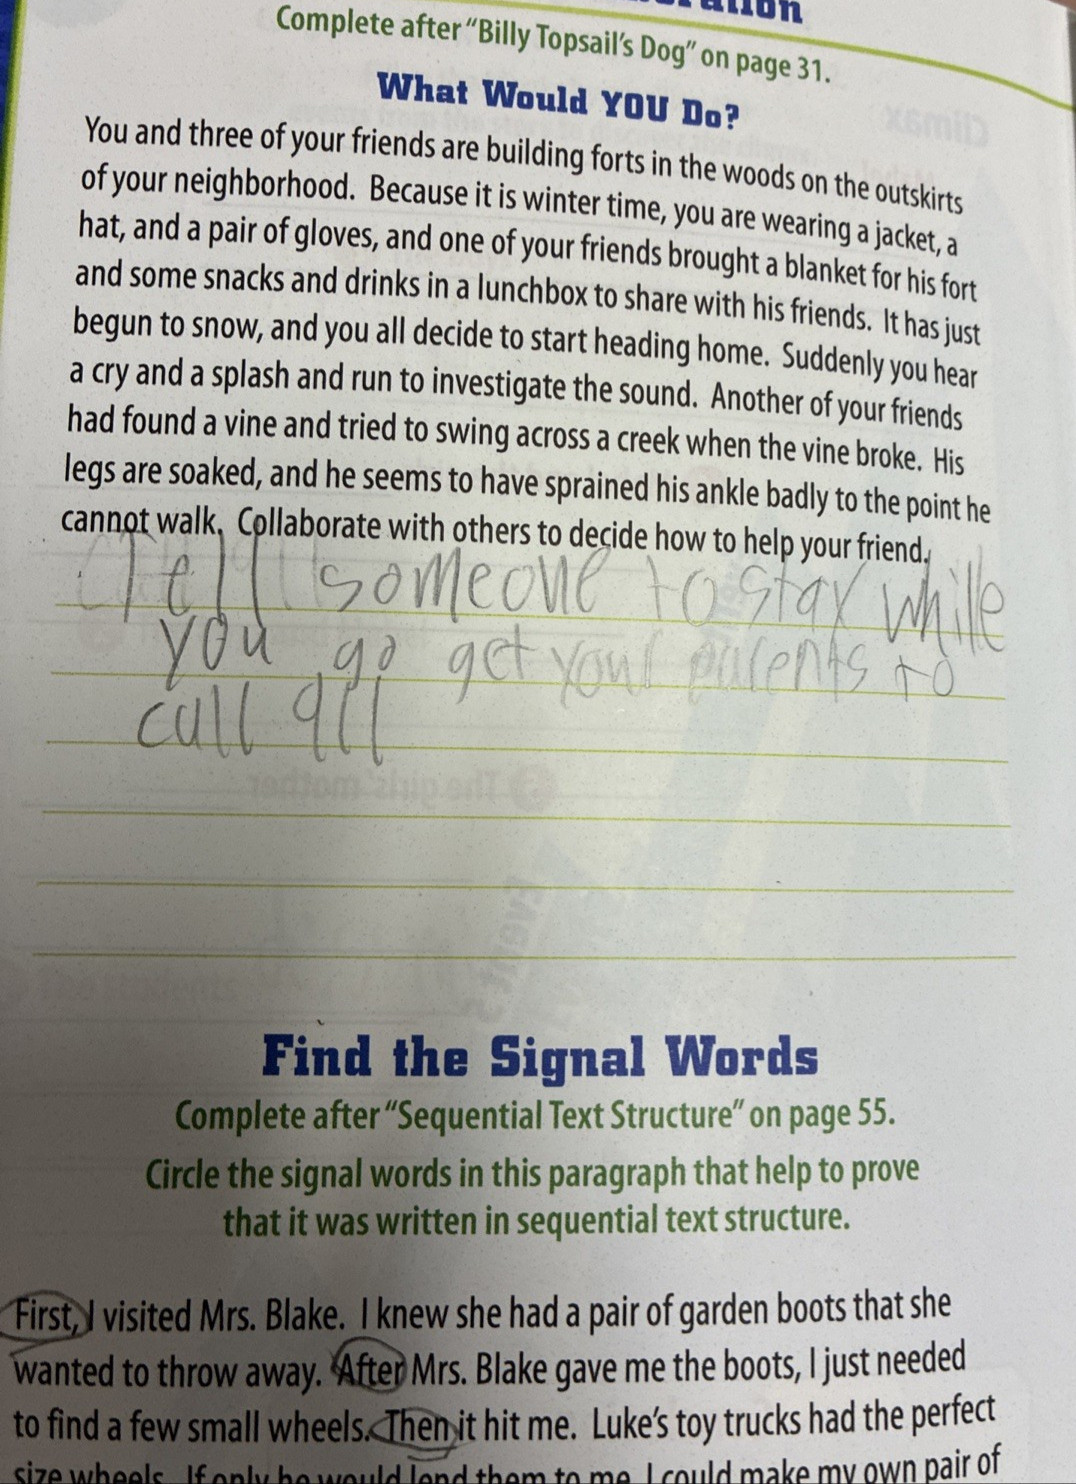 Complete after "Billy Topsail's Dog" on page 31.
What Would YOU Do?
You and three of your friends are building forts in the woods on the outskirts
of your neighborhood. Because it is winter time, you are wearing a jacket, a
hat, and a pair of gloves, and one of your friends brought a blanket for his fort
and some snacks and drinks in a lunchbox to share with his friends. It has just
begun to snow, and you all decide to start heading home. Suddenly you hear
a cry and a splash and run to investigate the sound. Another of your friends
had found a vine and tried to swing across a creek when the vine broke. His
legs are soaked, and he seems to have sprained his ankle badly to the point he
cannot walk. Collaborate with others to decide how to help your friend.
Tell someone to stay while
you go get your parents to
call 911
Find the Signal Words
Complete after "Sequential Text Structure" on page 55.
Circle the signal words in this paragraph that help to prove
that it was written in sequential text structure.
First, I visited Mrs. Blake. I knew she had a pair of garden boots that she
wanted to throw away. After Mrs. Blake gave me the boots, I just needed
to find a few small wheels. Then it hit me. Luke's toy trucks had the perfect
size wheels. If only he would lend them to me, I could make my own pair of